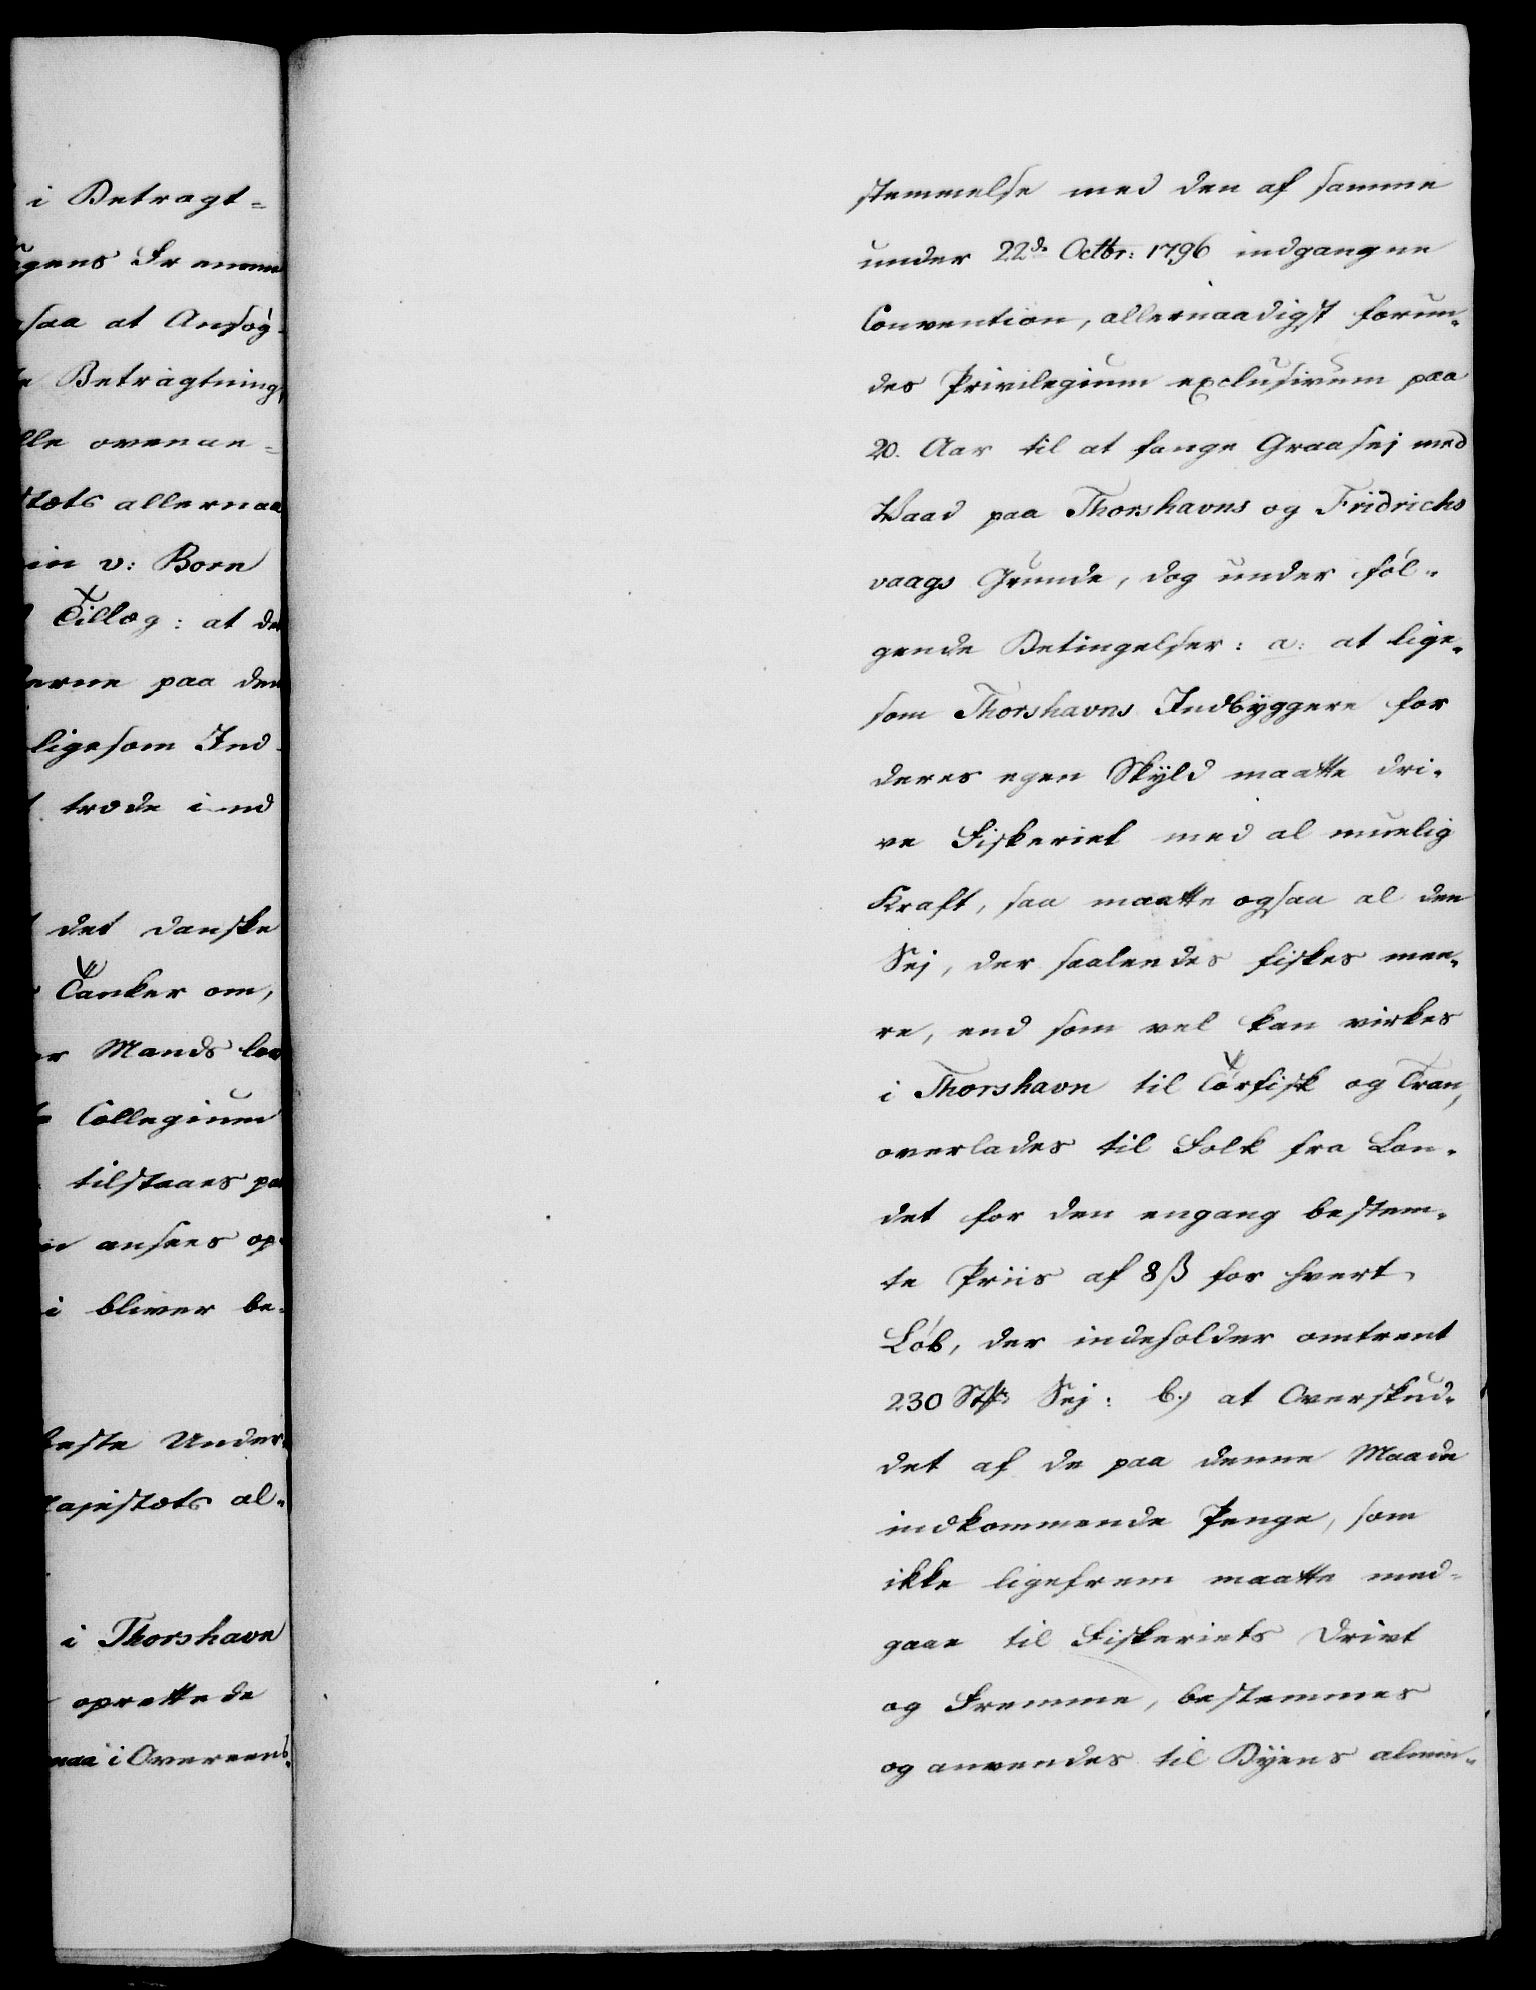 i Betragt-
gens Fremme
saa at Ansøg-
Betragtning,
ovenan-
allernaa
v: Born
Tillæg: at de
paa den
ligesom Ind-
træde ind
det danske
Tanker om,
Mands
Collegium
tilstaaes pa
ansees op-
i bliver be-
Under-
al-
i Thorshavn
oprettede
i Overeens-
stemmelse med den af samme
under 22de Octbr: 1796 indgangne
Convention, allernaadigst forun-
des Privilegium exclusivum paa
20. Aar til at fange Graasej med
Waad paa Thorshavns og Fridrichs
vaags Grunde, dog under føl-
gende Betingelser: a: at lige-
som Thorshavns Indbyggere for
deres egen Skyld maatte dri-
ve Fiskeriet med al muelig
Kraft, saa maatte ogsaa al den
Sej, der saaledes fiskes mee-
re, end som vel kan virkes
i Thorshavn til Törfisk og Tran,
overlades til Folk fra Lan-
det for den engang bestem-
te Priis af 8 ß for hvert
Løb, der indeholder omtrent
230 Stkr Sej: b.) at Overskud-
det af de paa denne Maade
indkommende Penge, som
ikke ligefrem maatte med-
gaae til Fiskeriets Drivt
og Fremme, bestemmes
og anvendes til Byens almin-